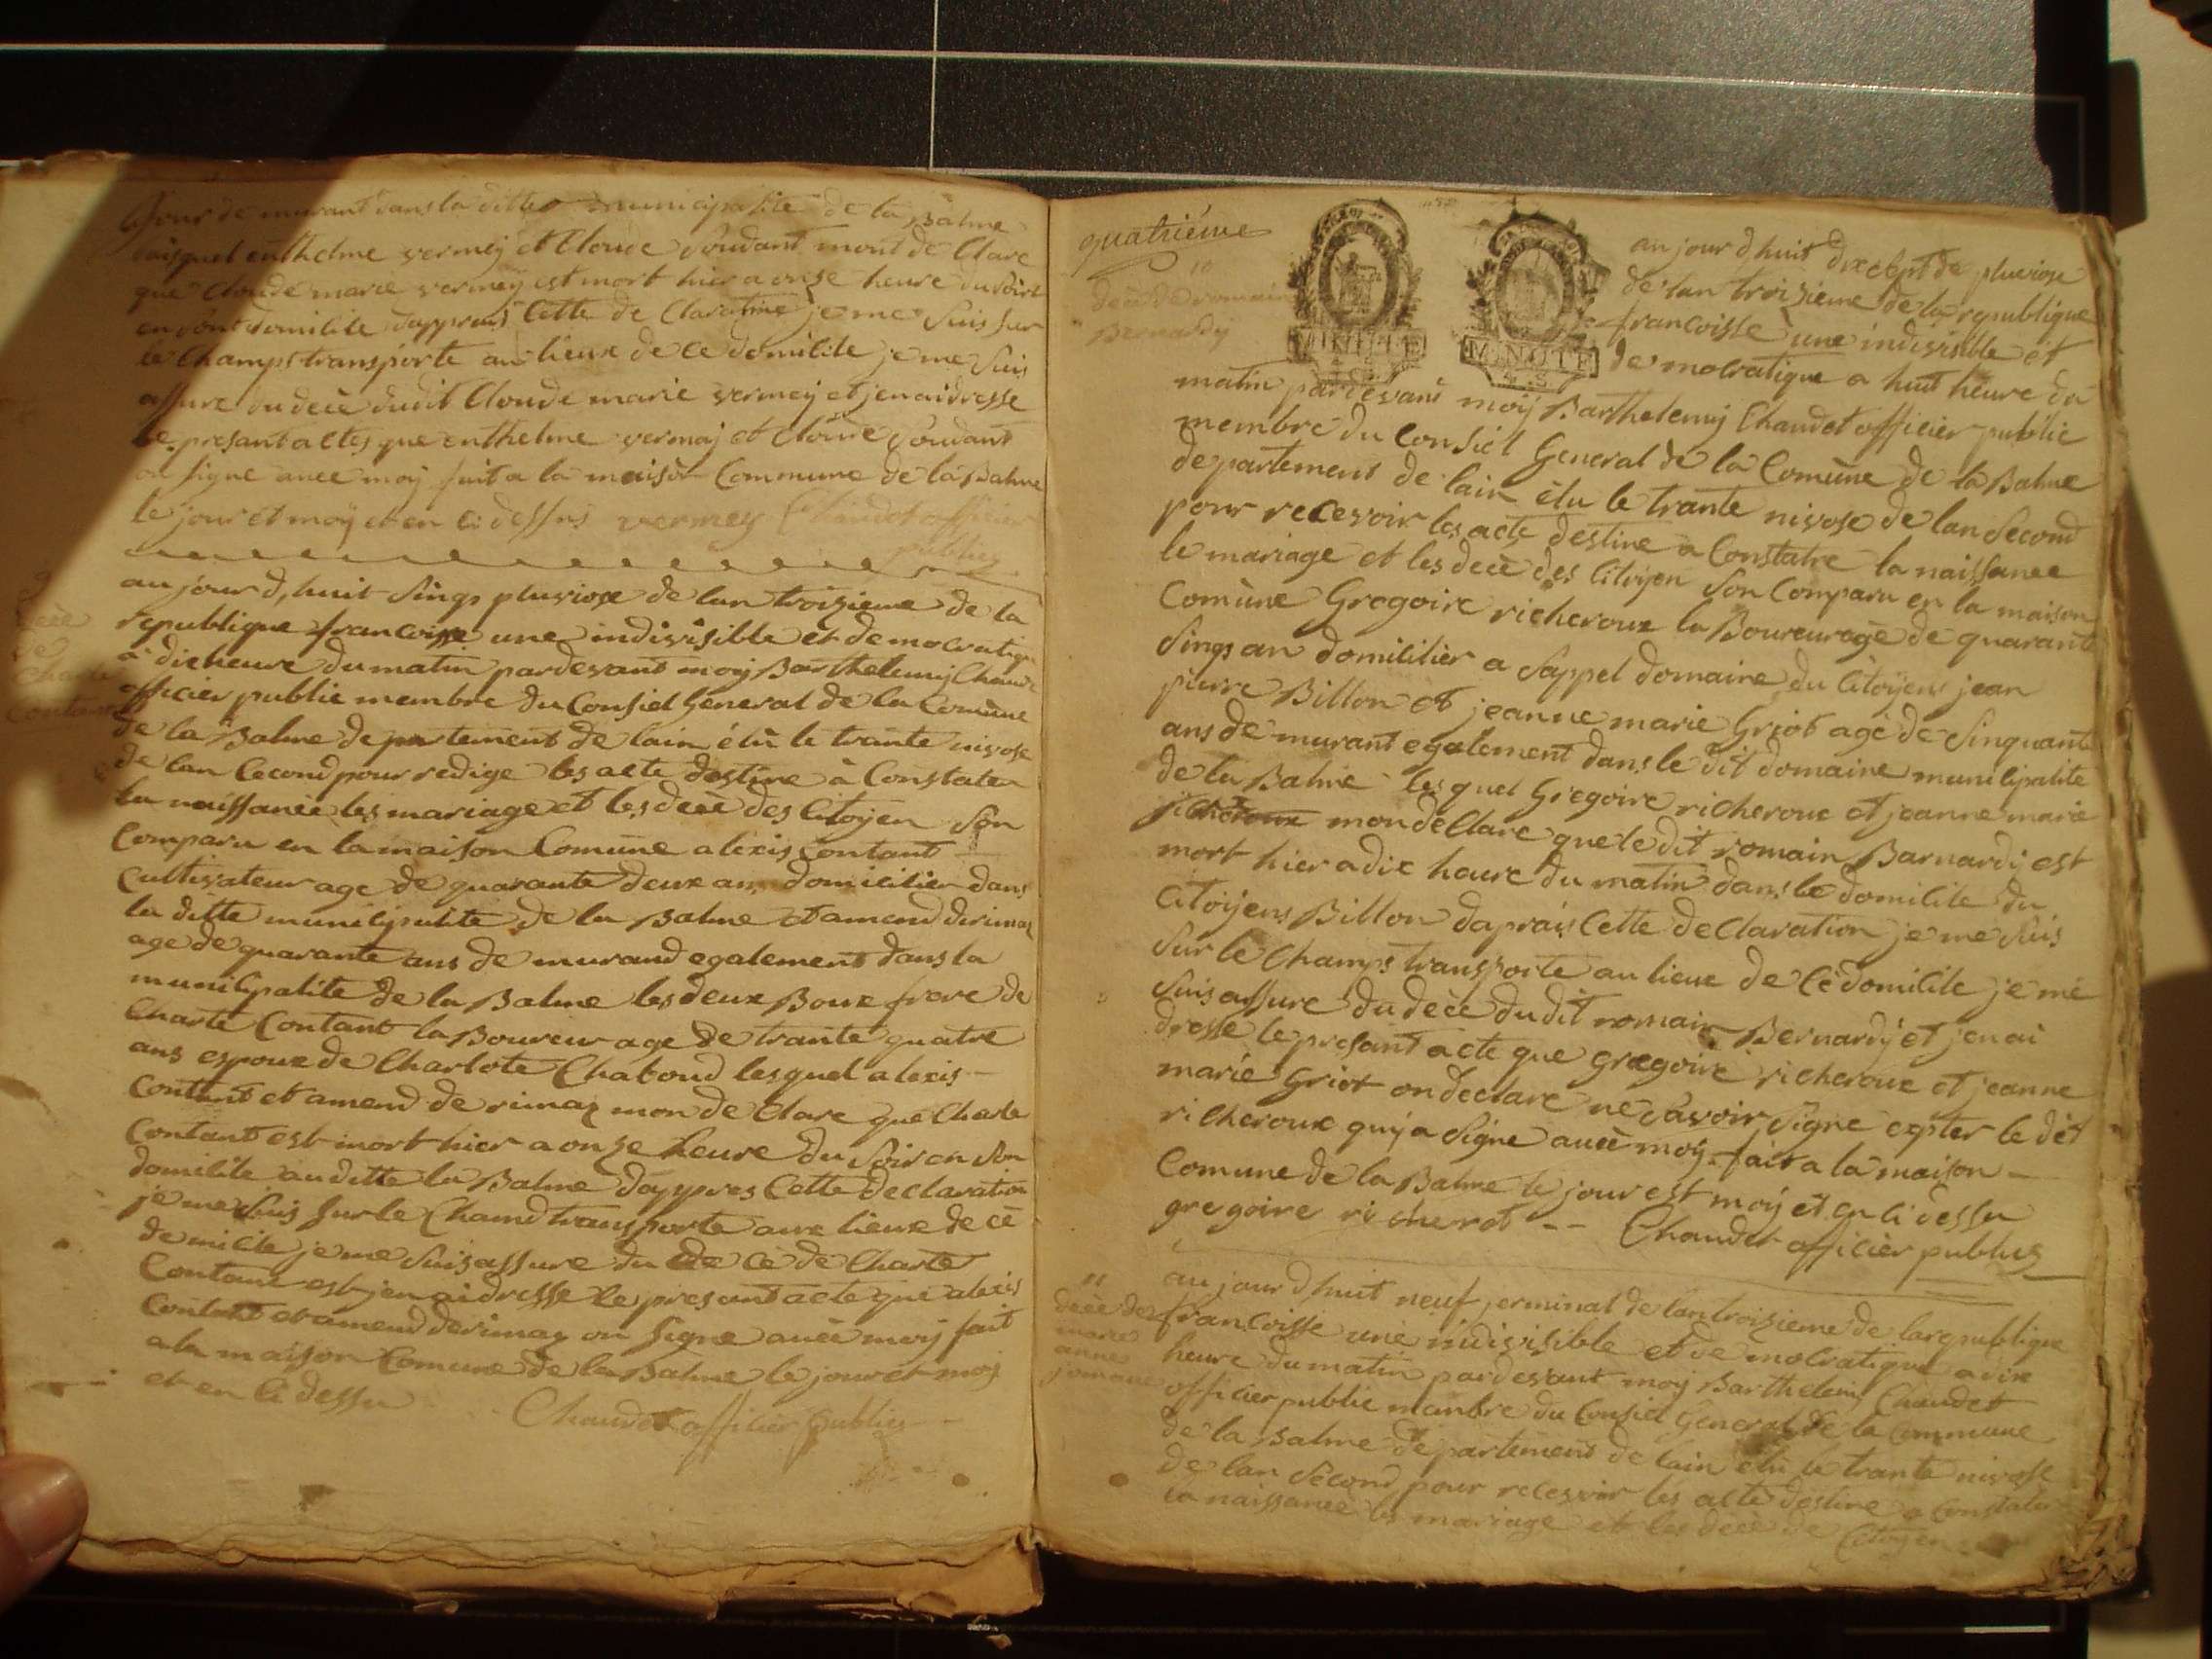 jour de murant dans la ditte municipalite de la Balme
lesquel enthelme vermey et Cloude Soudant mont de Clare
que Cloude marie vermey est mort hier a onse heure du soire
en son domilile dapprais Cette de Claration je me suis sur
le Champs transporte au lieux de ce domilile je me suis
assure du decè dudit Cloude marie vermey et jen ai dresse
le presant actes que enthelme vermay et Cloude Soudant
on signe avec moy fait a la maison Commune de la Balme
le jour et moy et en ci dessus vermey Chaudet officier
publics
9
decè
de
Charle
Contant
au jour d, huit Sings pluviose de lan troizieme de la
republique francoisse une indivisible et de mocratique
a dix heure du matin pardevant moy Barthelemy Chaudet
officier public membre du Consiel General de la Comune
de la Balme departement de lain élu le trante nivose
de lan Cecond pour redige les acte destine à Constater
la naissance les mariage et les decè des Citoyen Son
Comparu en la maison Comune alexis Contant
Cultivateur age de quarante deux an domicilier dans
la ditte munilipalite de la Balme et amend derimaz
age de quarante ans de murand egalement dans la
munilipalite de la Balme les deux Boux frere de
Charle Contant la Boureur age de trante quatre
ans espoux de Charlote Chaboud lesquel alexis
Contant et amend de rimaz mon de Clare que Charle
Contant est mort hier a onze heure du Soir en Son
domilile auditte la Balme dappres Cette declaration
je me suis sur le Chamd transporte aux lieux de cè
de milile je me suis assure du de cè de Charle
Contant est jen ai dresse le presant acte que alexis
Contant et amend derimaz on signe avec moy fait
a la maison Comune de la Balme le jour et moy
et en ci dessu
Chaudet officier publics
quatriéme
10
decè de romain
Bernardy
MINUTE
MINUTE
au jour d huit dixsept de pluviose
de lan troizieme de la republique
francoisse une indivisible et
de mocratique a huit heure du
matin pardevant moy Barthelemy Chaudet officier public
membre du Consiel General de la Comune de la Balme
departement de lain élu le trante nivose de lan Second
pour recevoir les acte destine a Constatre la naissance
le mariage et les decè des Citoyen Son Comparu en la maison
Comune Gregoire richeroux la Boureur agè de quarante
Sings an domililier a Sappel domaine du Citoyens jean
pierre Billon et jeanne marie Griot agè de Singuante
ans de murant egalement dans le dit domaine munilipalite
de la Balme lesquel Gregoire richeroux et jeanne marie
richeroux mon de Clare que le dit romain Barnardy est
mort hier a dix heure du matin dans le domilile du
Citoyens Billon daprais Cette declaration je me suis
sur le Champs transporte au lieux de Cè domilile je me
suis assure du decè du dit romain Bernardy et jen ai
dresse le presant acte que gregoire richeroux et jeanne
marie Griot on declare ne savoir signe expter le dit
richeroux quy a signe avec moy fait a la maison
Comune de la Balme le jour est moy et en ci dessu
gregoire richerot -- Chaudet officier publics
11
decè de
marie
anne
au jour d huit neuf jerminal de lan troizieme de la republique
francoisse une indivisible et de mocratique a dix
heure du matin pardevant moy Barthelemy Chaudet
officier public manbre du Consiel General de la Commune
de la Balme departement de lain élu le trante nivose
de lan Second pour recevoir les acte destine a Constater
la naissance les mariage et les decè de Citoyen